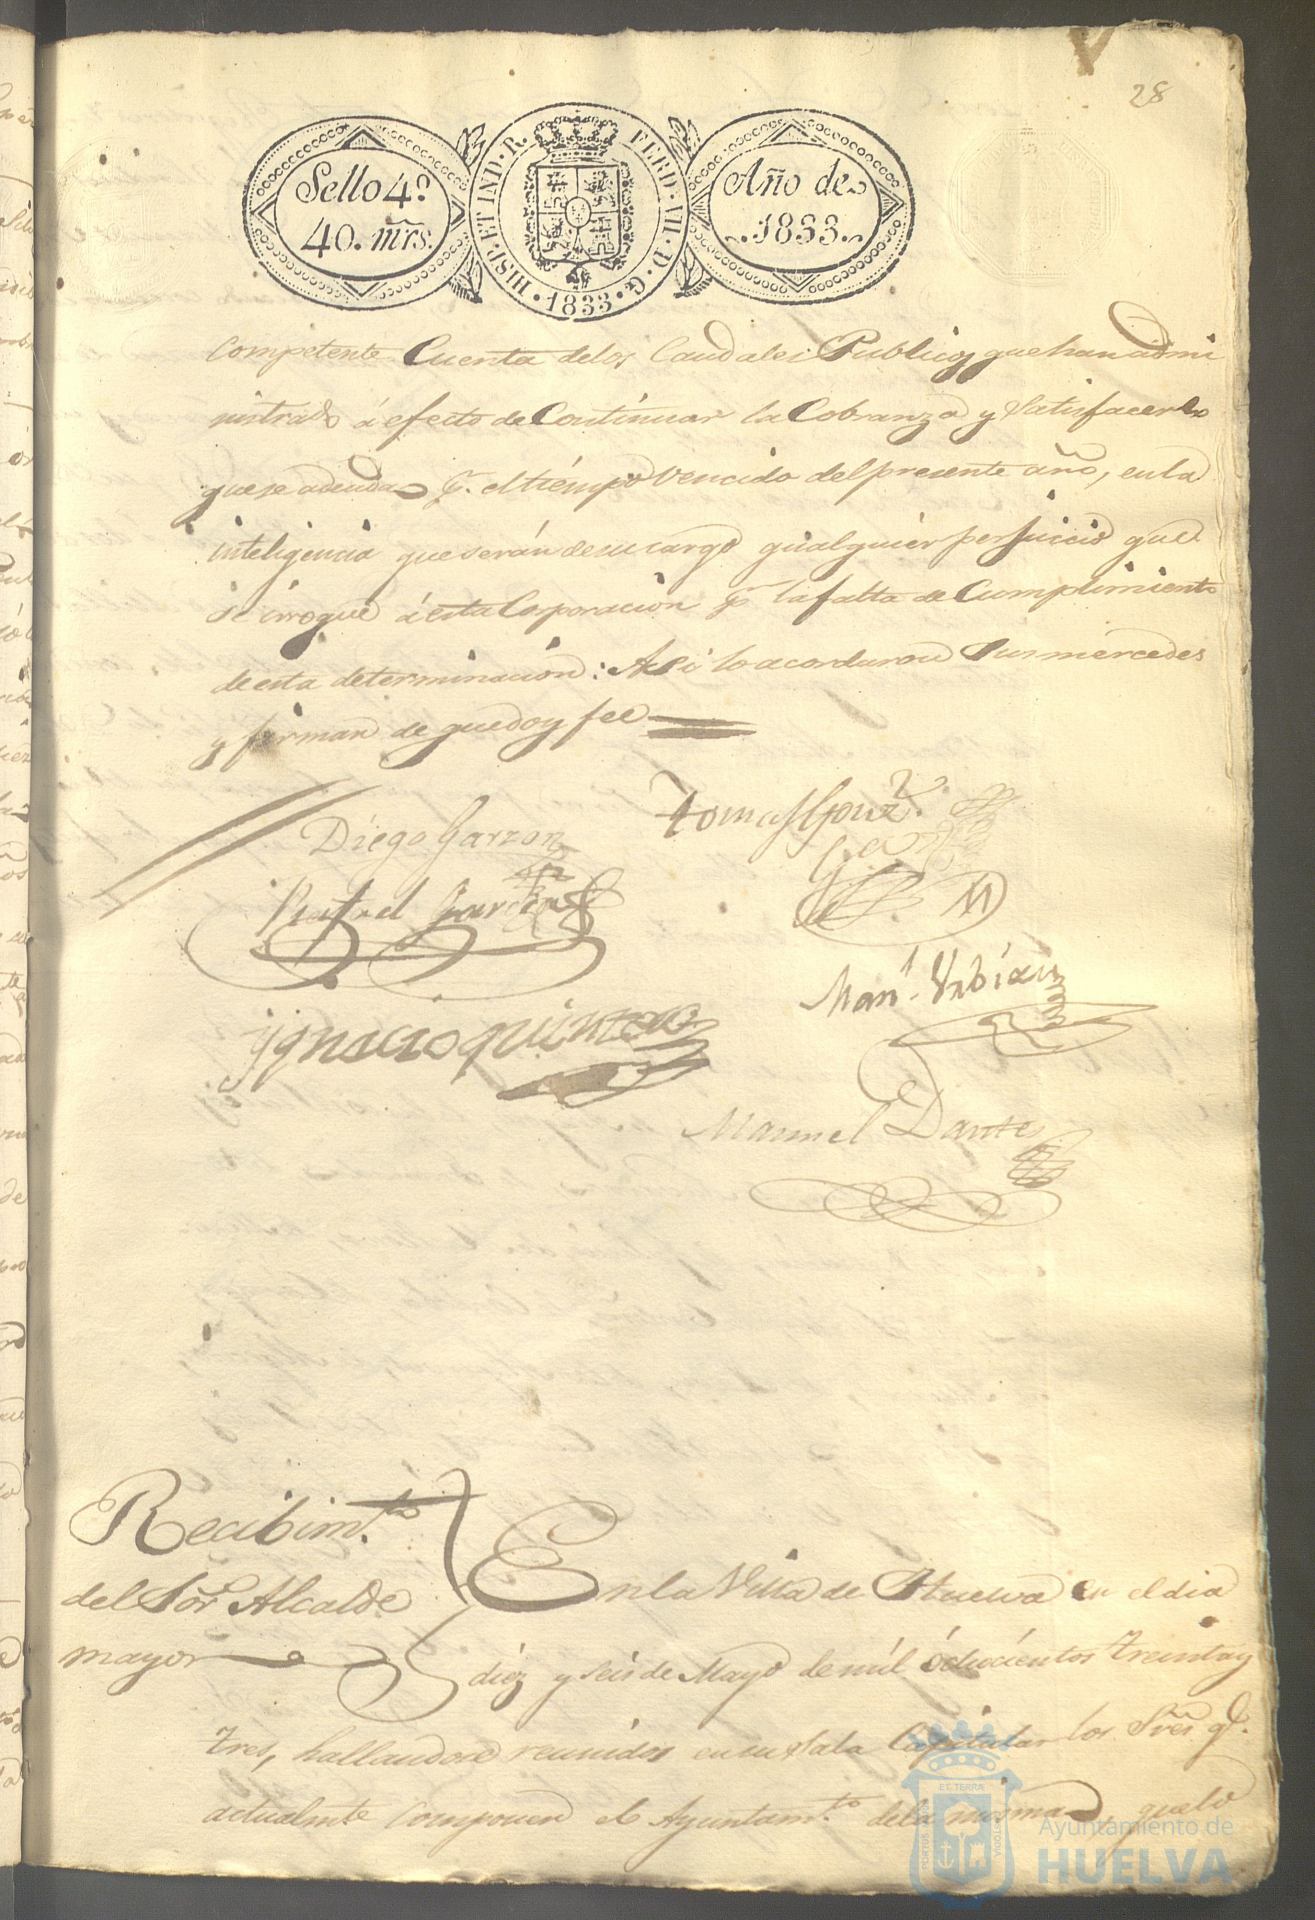 28
Sello 4º
40. mrs.
HISP. ET IND. R.
FERD. VII. D. G.
1833
Año de
1833.
competente Cuenta delos Caudales Publicos que han admi
nistrado á efecto de Continuar la Cobranza y satisfacer lo
que se adeuda pr. el tiémpo Vencido del presente año, en la
inteligencia que serán de su cargo qualquier perjuicio que
se irrogue á esta Corporacion pr. la falta de Cumplimiento
de esta determinacion: Asi lo acordaron Sus mercedes
y firman de que doy fee
Diego Garzon
Tomas Gonz.
Rafael Garzon
Manl.
Ygnacio quintero
Manuel Dante
Recibimto.
del Sor. Alcalde
mayor
En la Villa de Huelva en el dia
diéz y seis de Mayo de mil óchocientos treinta y
tres, hallandose reunidos en su sala Capitular los Sres. qe.
actualmte. componen el Ayuntamto. de la misma, que lo
PORTUS
ET TERRÆ
CUSTODIA
Ayuntamiento de
HUELVA